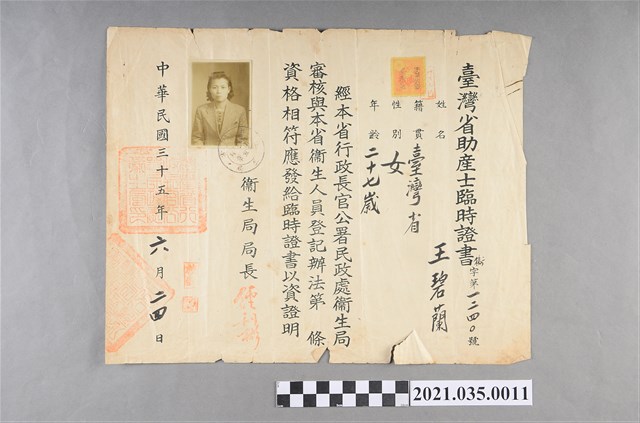 臺灣省助產士臨時證書
衛字第一二四〇號
姓名 王碧蘭
籍貫 臺灣省
性別 女
年齡 二十七歲
經本省行政長官公署民政處衞生局
審核與本省衞生人員登記辦法第 條
資格相符應發給臨時證書以資證明
衞生局局長
中華民國三十五年六月二四日
2021.035.0011